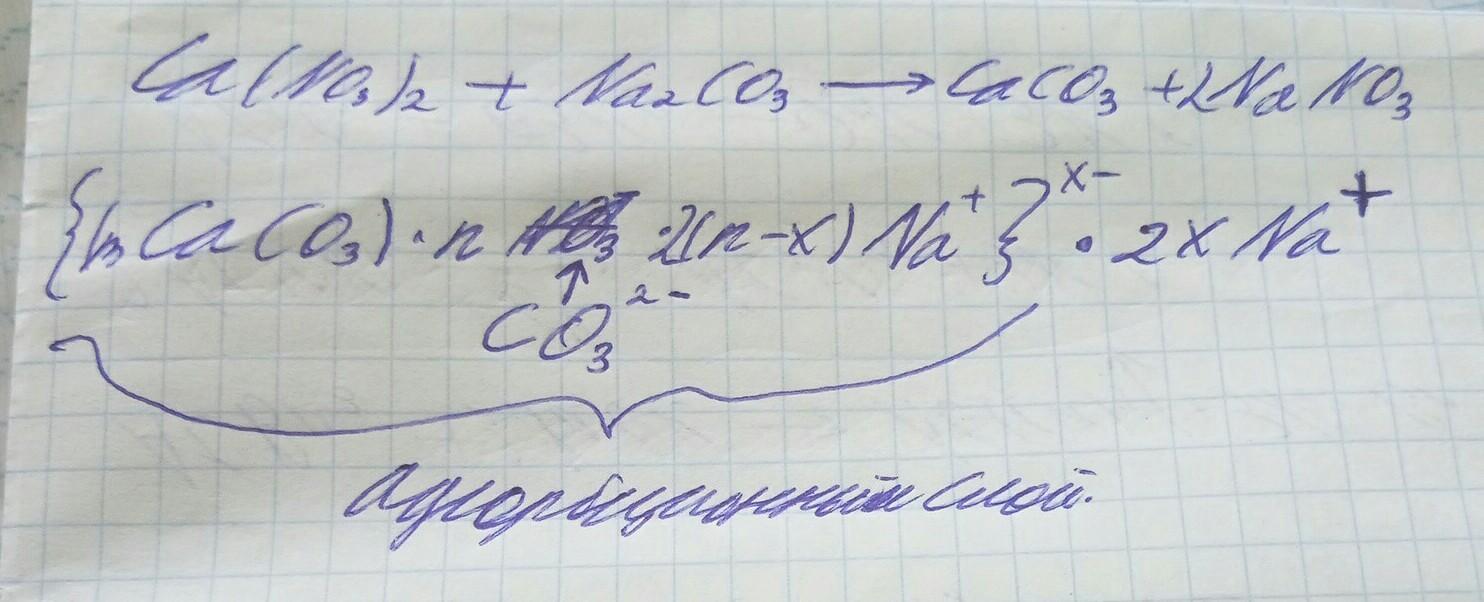 Ca(NO₃)₂ + Na₂CO₃ → CaCO₃ + 2NaNO₃
{(mCaCO₃) · n · 2(n-x) Na⁺}ˣ⁻ · 2x Na⁺
↑
CO₃²⁻
Адсорбционный слой.